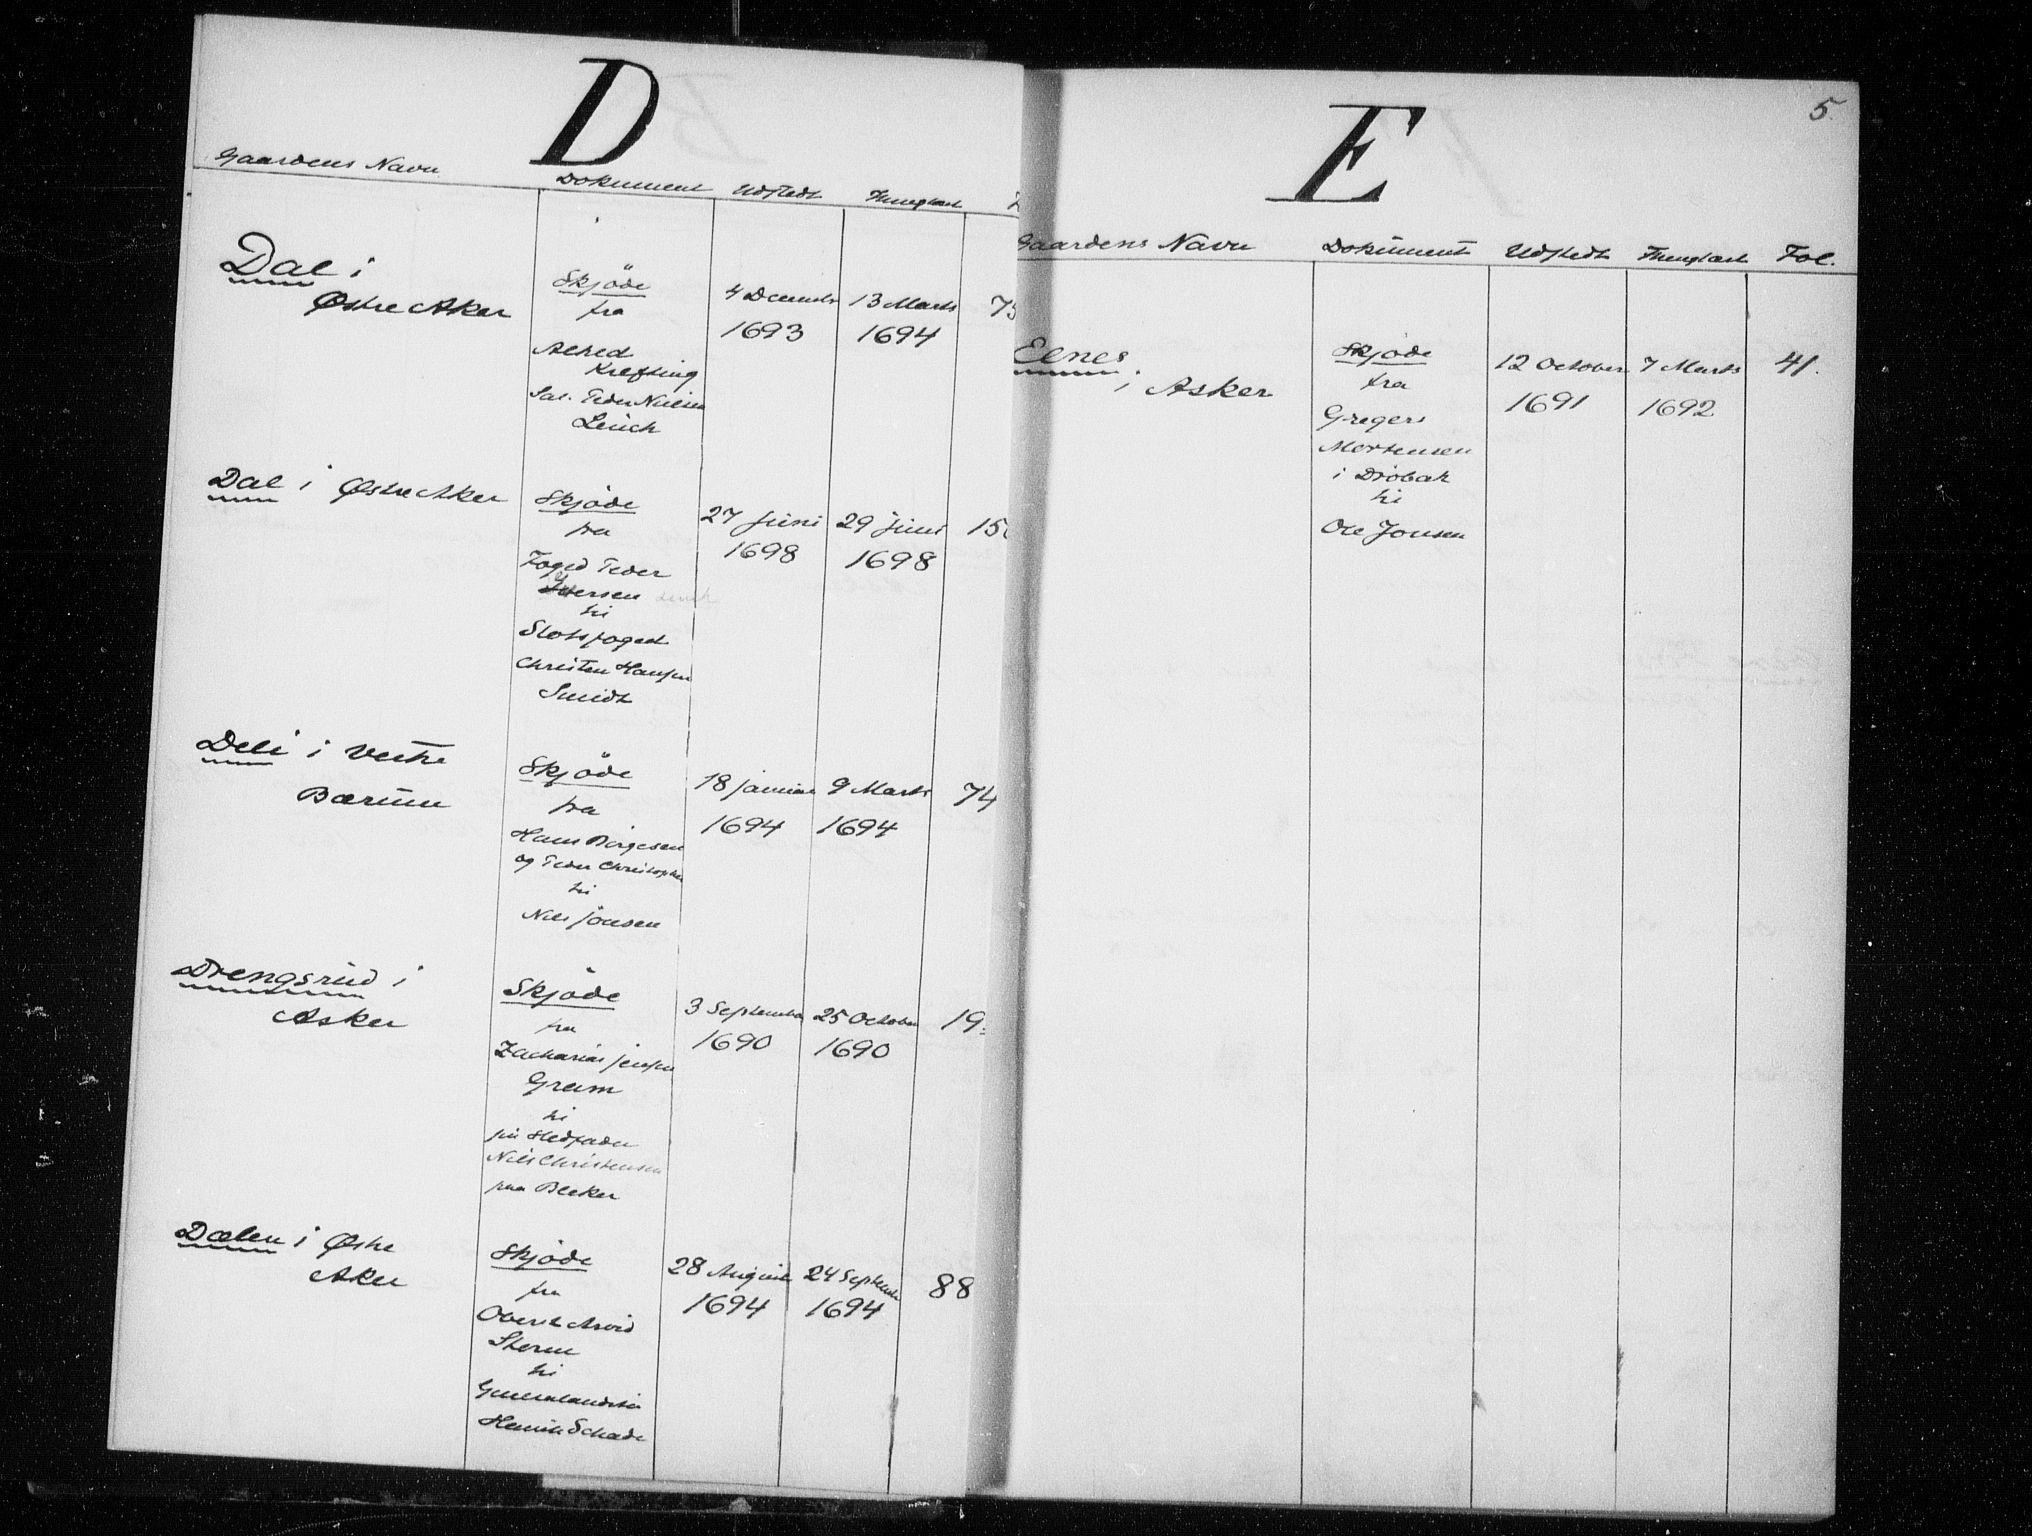 D
Gaardens Navn Dokument Udstedt Thinglæst
Dal i
Østre Aker
Skjöde
fra
Alhed
Krefting
Sal. Peder Nielsen
Leuch
4 Decembr
1693
13 Marts
1694
Dal i Østre Aker
Skjöde
fra
Foged Peder
Iversen Leuch
til
Slotsfoged
Christen Hansen
Smidt
27 Juni
1698
29 Juni
1698
Deli i Vestre
Bærum
Skjöde
fra
Hans Börgesen
og Peder Christopher
til
Nils Jönsen
18 Januar
1694
9 Marts
1694
74
Drengsrud i
Asker
Skjöde
fra
Zacharias Jensen
Gram
til
sin Stedfader
Nils Christensen
paa Bleker
3 September
1690
25 October
1690
Dælen i Østre
Aker
Skjöde
fra
Oberst Arvid
Storm
til
Generalauditör
Henrik Schade
28 August
1694
24 September
1694
88
5.
E
Gaardens Navn Dokument Udstedt Thinglæst Fol.
Elnes
i Asker
Skjöde
fra
Gregers
Mortensen
i Dröbak
til
Ole Jonsen
12 October
1691
7 Marts
1692
41.